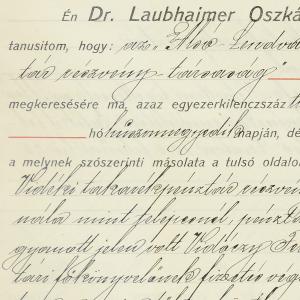 Én Dr. Laubhaimer Oszká
tanusitom, hogy: az „Alsó-Lendva
tár részvény-társaság"
megkeresésére ma, azaz egyezerkilenczszáz
hó huszonnegyedik napján, dé
a melynek szószerinti másolata a tulsó oldalo
Vidéki takarékpénztár részvén
nála mint felperesnél, pénztá
gyanott jelen volt
tári főkönyvelőnek fizetés vég